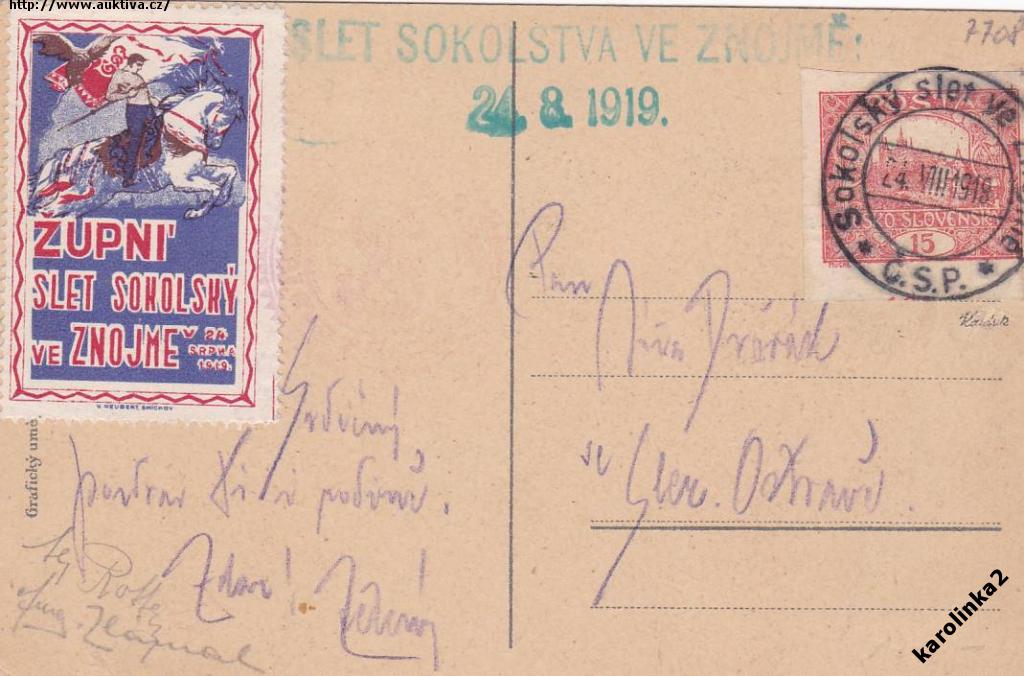 http://www.auktiva.cz/
SLET SOKOLSTVA VE ZNOJMĚ:
24. 8. 1919.
7708
ŽUPNÍ
SLET SOKOLSKÝ
VE ZNOJMĚ 24
SRPNA
1919.
V. NEUBERT, SMÍCHOV
Sokolský slet ve
24. VIII 1919
* Č.S.P. *
SKO SLOVENSK
15
Grafický umě
Pan
Dvořák
Slez. Ostravě.
Srdečný
pozdrav Ti i rodině.
Zdar!
karolinka2